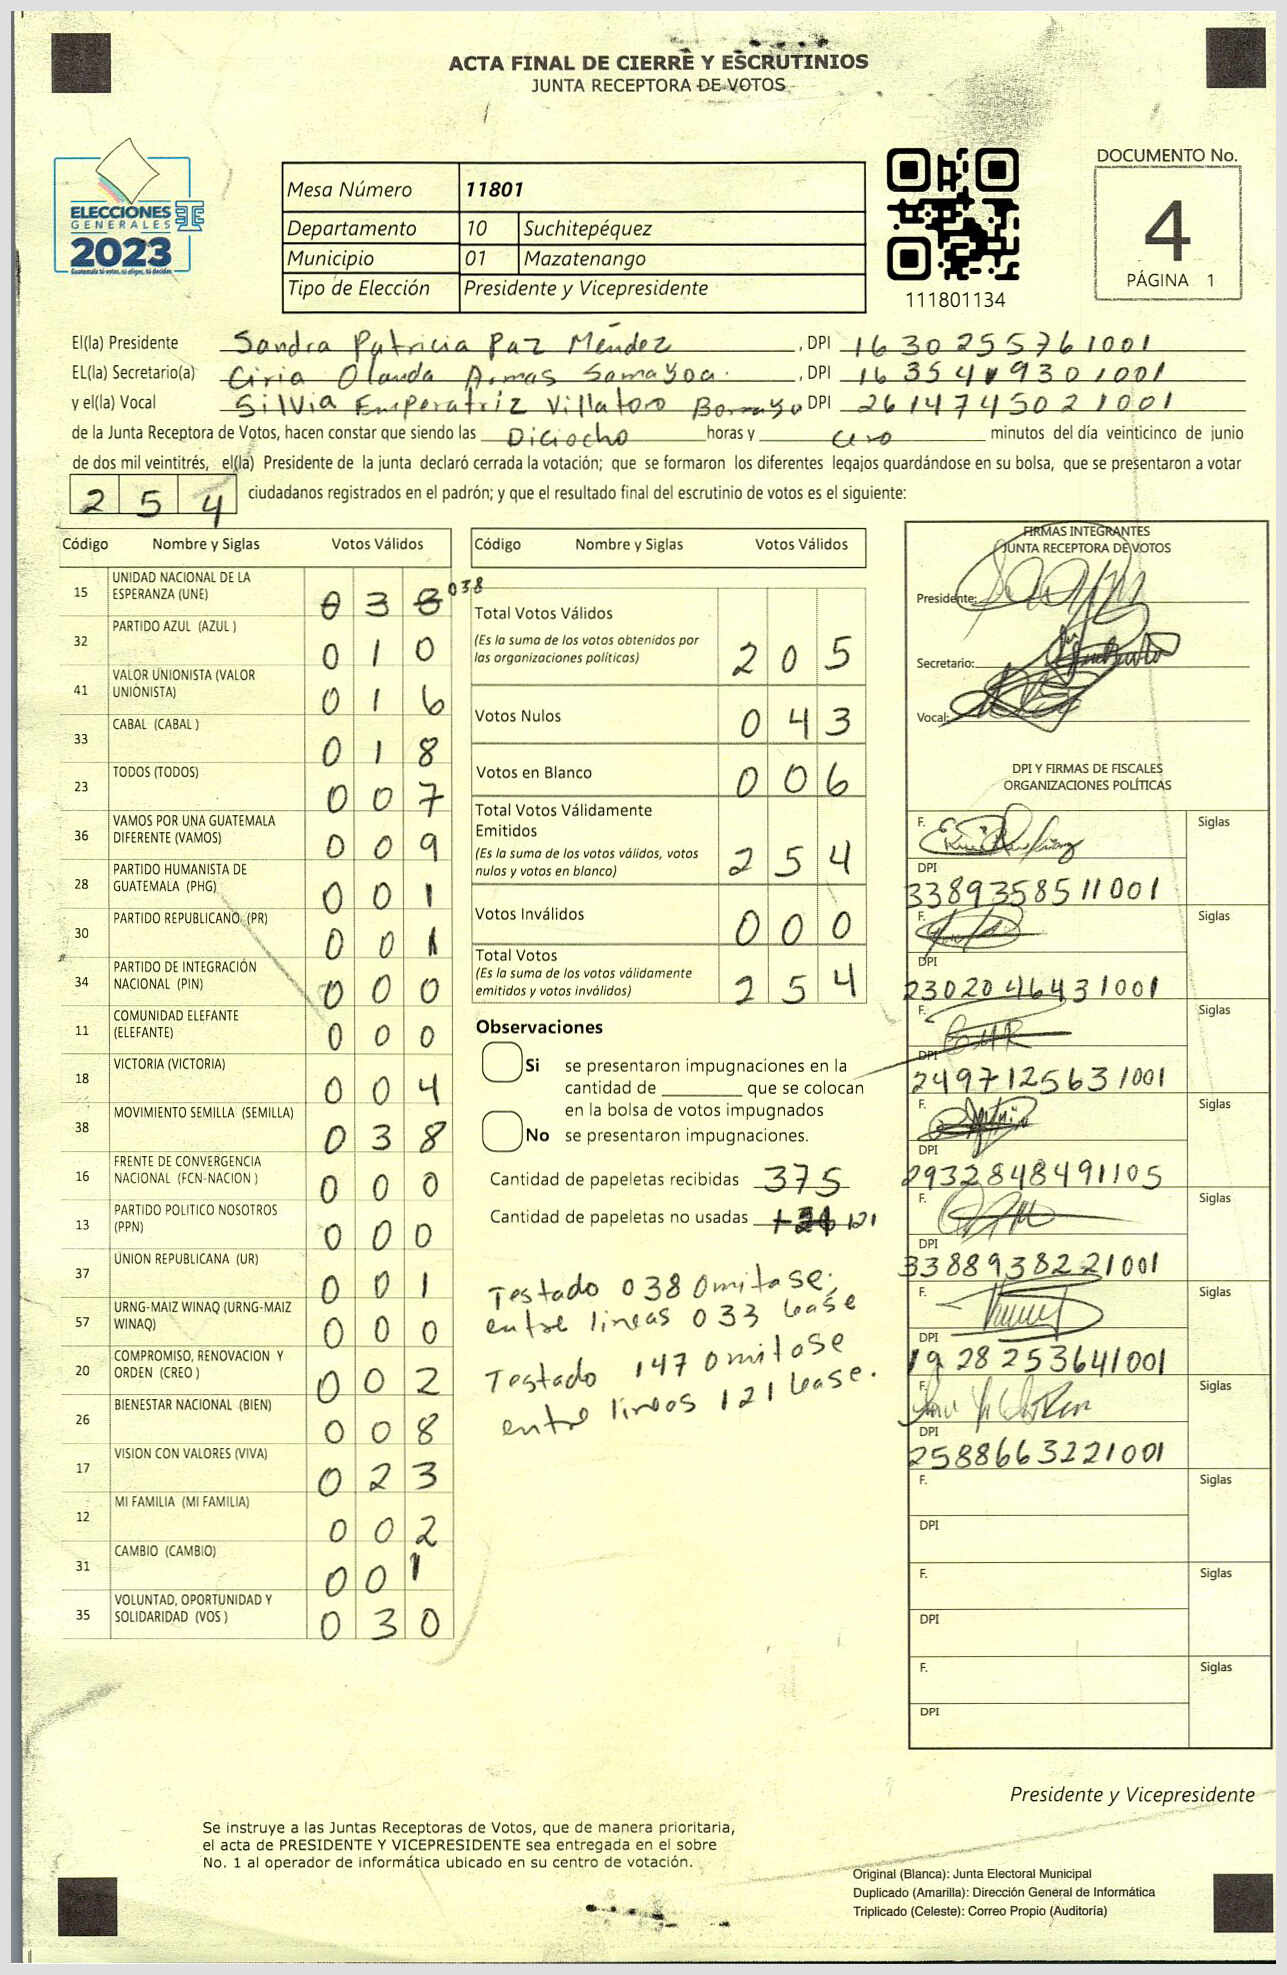 ACTA FINAL DE CIERRE Y ESCRUTINIOS
JUNTA RECEPTORA DE VOTOS
ELECCIONES
GENERALES
2023
Guatemala tú votas, tú eliges, tú decides
Mesa Número 11801
Departamento 10 Suchitepéquez
Municipio 01 Mazatenango
Tipo de Elección Presidente y Vicepresidente
111801134
DOCUMENTO No.
4
PÁGINA 1
El(la) Presidente Sandra Patricia Paz Méndez, DPI 1630255761001
EL(la) Secretario(a) Ciria Olanda Armas Samayoa, DPI
y el(la) Vocal Silvia Emperatriz Villatoro Borrayo DPI 2614745021001
de la Junta Receptora de Votos, hacen constar que siendo las Diciocho horas y cero minutos del día veinticinco de junio
de dos mil veintitrés, el(la) Presidente de la junta declaró cerrada la votación; que se formaron los diferentes legajos guardándose en su bolsa, que se presentaron a votar
254 ciudadanos registrados en el padrón; y que el resultado final del escrutinio de votos es el siguiente:
Código Nombre y Siglas Votos Válidos
15 UNIDAD NACIONAL DE LA ESPERANZA (UNE) 038
32 PARTIDO AZUL (AZUL ) 010
41 VALOR UNIONISTA (VALOR UNIONISTA) 016
33 CABAL (CABAL ) 018
23 TODOS (TODOS) 007
36 VAMOS POR UNA GUATEMALA DIFERENTE (VAMOS) 009
28 PARTIDO HUMANISTA DE GUATEMALA (PHG) 001
30 PARTIDO REPUBLICANO (PR) 001
34 PARTIDO DE INTEGRACIÓN NACIONAL (PIN) 000
11 COMUNIDAD ELEFANTE (ELEFANTE) 000
18 VICTORIA (VICTORIA) 004
38 MOVIMIENTO SEMILLA (SEMILLA) 038
16 FRENTE DE CONVERGENCIA NACIONAL (FCN-NACION ) 000
13 PARTIDO POLITICO NOSOTROS (PPN) 000
37 UNION REPUBLICANA (UR) 001
57 URNG-MAIZ WINAQ (URNG-MAIZ WINAQ) 000
20 COMPROMISO, RENOVACION Y ORDEN (CREO ) 002
26 BIENESTAR NACIONAL (BIEN) 008
17 VISION CON VALORES (VIVA) 023
12 MI FAMILIA (MI FAMILIA) 002
31 CAMBIO (CAMBIO) 001
35 VOLUNTAD, OPORTUNIDAD Y SOLIDARIDAD (VOS ) 030
Código Nombre y Siglas Votos Válidos
Total Votos Válidos 205
(Es la suma de los votos obtenidos por
las organizaciones políticas)
Votos Nulos 043
Votos en Blanco 006
Total Votos Válidamente
Emitidos 254
(Es la suma de los votos válidos, votos
nulos y votos en blanco)
Votos Inválidos 000
Total Votos 254
(Es la suma de los votos válidamente
emitidos y votos inválidos)
Observaciones
Si se presentaron impugnaciones en la
cantidad de ________ que se colocan
en la bolsa de votos impugnados
No se presentaron impugnaciones.
Cantidad de papeletas recibidas 375
Cantidad de papeletas no usadas 121
Testado 038 Omitase,
entre lineas 033 lease
Testado 147 Omitase
entre lineas 121 lease.
FIRMAS INTEGRANTES
JUNTA RECEPTORA DE VOTOS
Presidente:
Secretario:
Vocal:
DPI Y FIRMAS DE FISCALES
ORGANIZACIONES POLÍTICAS
F. Siglas
DPI
3389358511001
F. Siglas
DPI
2302046431001
F. Siglas
DPI
2497125631001
F. Siglas
DPI
2932848491105
F. Siglas
DPI
3388938221001
F. Siglas
DPI
1928253641001
F. Siglas
DPI
2588663221001
F. Siglas
DPI
F. Siglas
DPI
F. Siglas
DPI
Presidente y Vicepresidente
Se instruye a las Juntas Receptoras de Votos, que de manera prioritaria,
el acta de PRESIDENTE Y VICEPRESIDENTE sea entregada en el sobre
No. 1 al operador de informática ubicado en su centro de votación.
Original (Blanca): Junta Electoral Municipal
Duplicado (Amarilla): Dirección General de Informática
Triplicado (Celeste): Correo Propio (Auditoría)